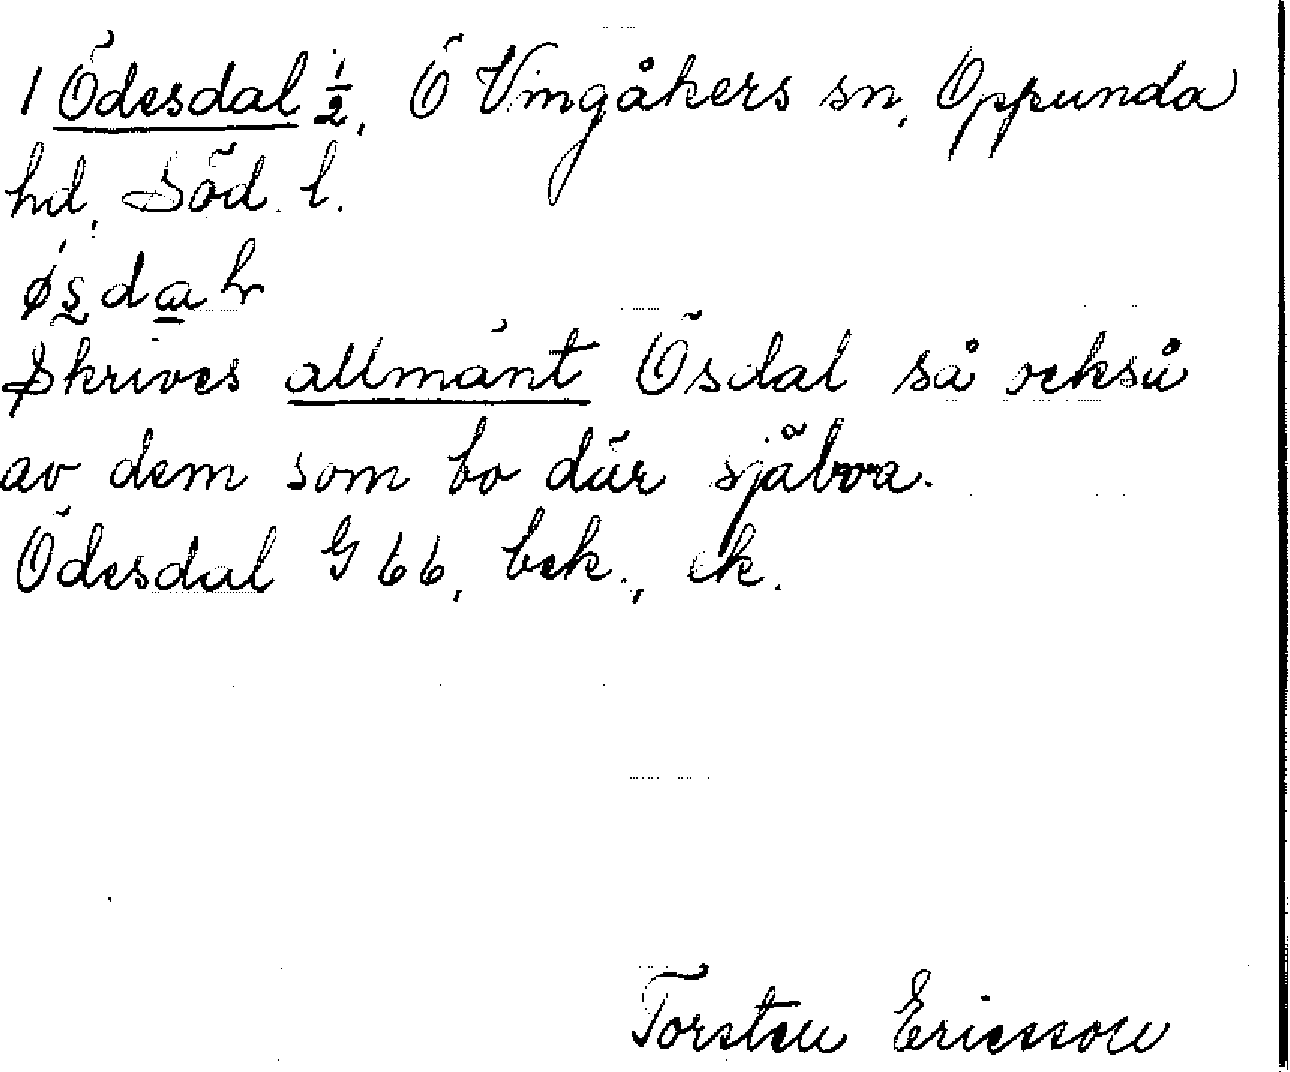 1 Ödesdal ½, Ö Vingåkers sn, Oppunda
hd, Söd. l.
Skrives allmänt Ösdal så också
av dem som bo där själva.
Ödesdal G 66, bek., ek.
Torsten Ericsson